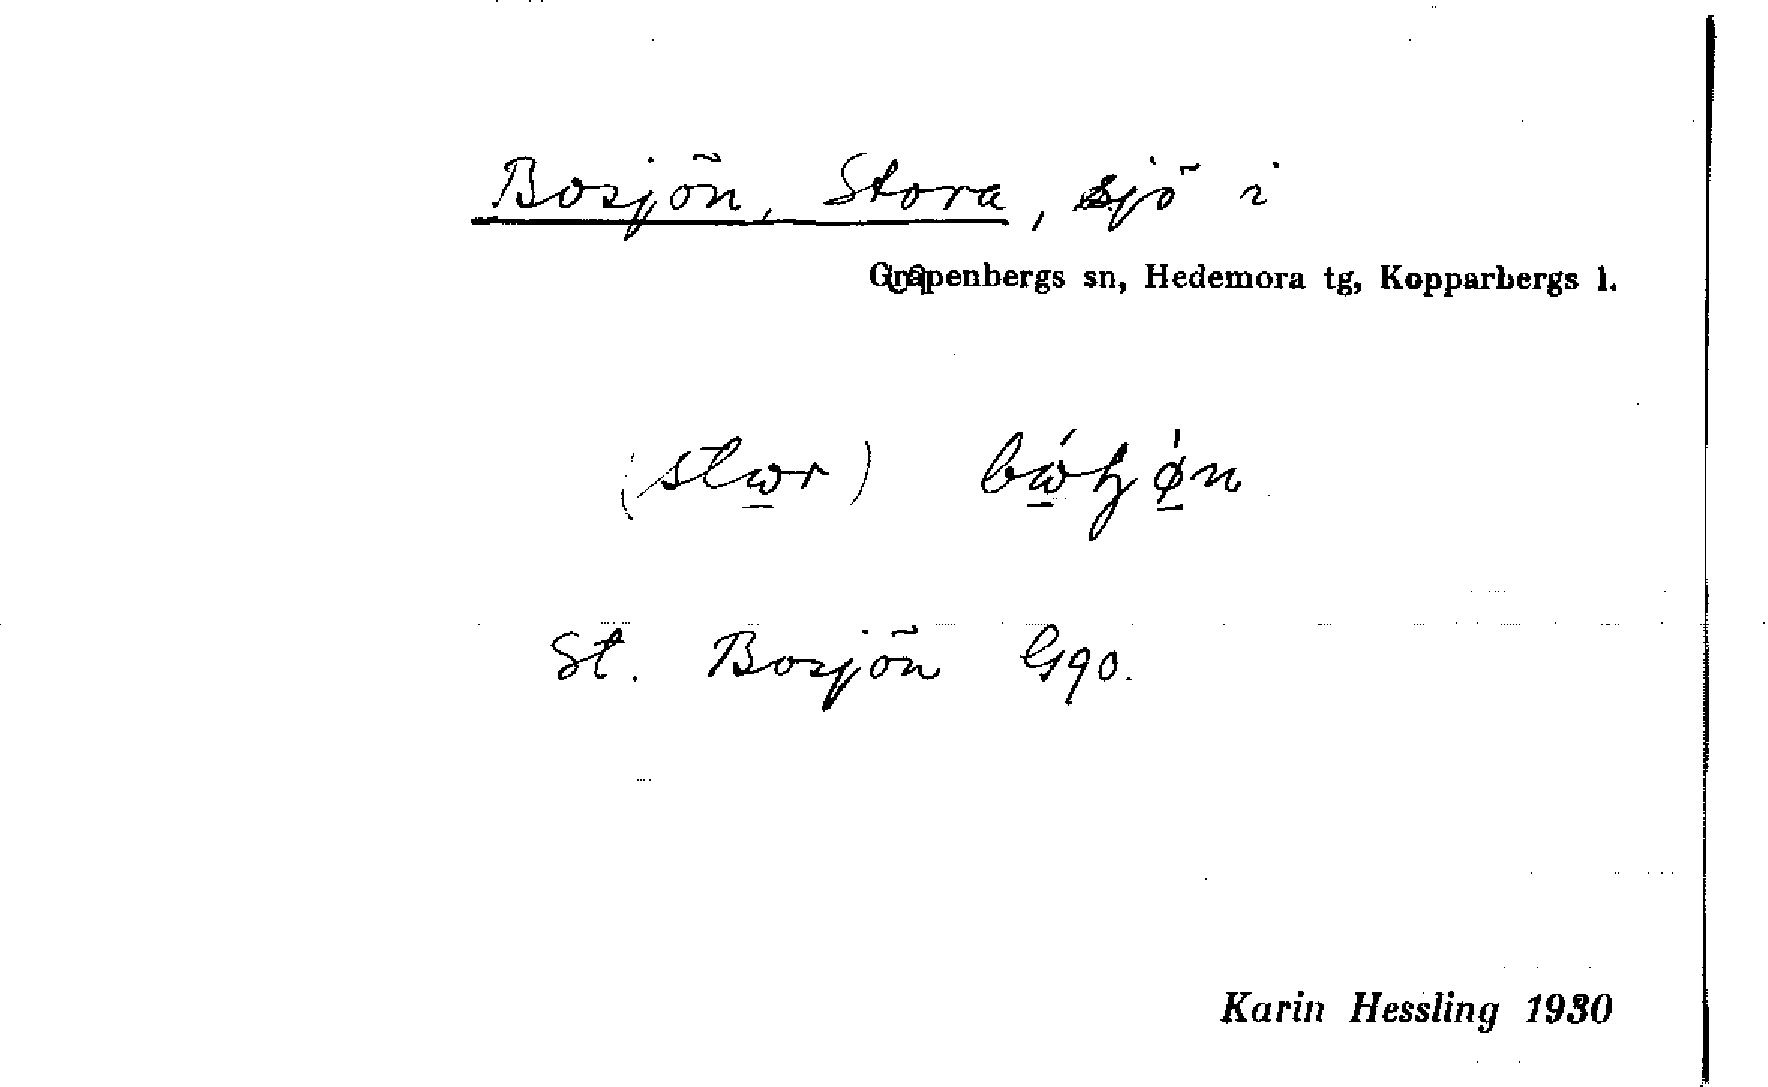 Bosjön, Stora, sjö i
Grapenbergs sn, Hedemora tg, Kopparbergs l.
(stωr)
St. Bosjön G90.
Karin Hessling 1930